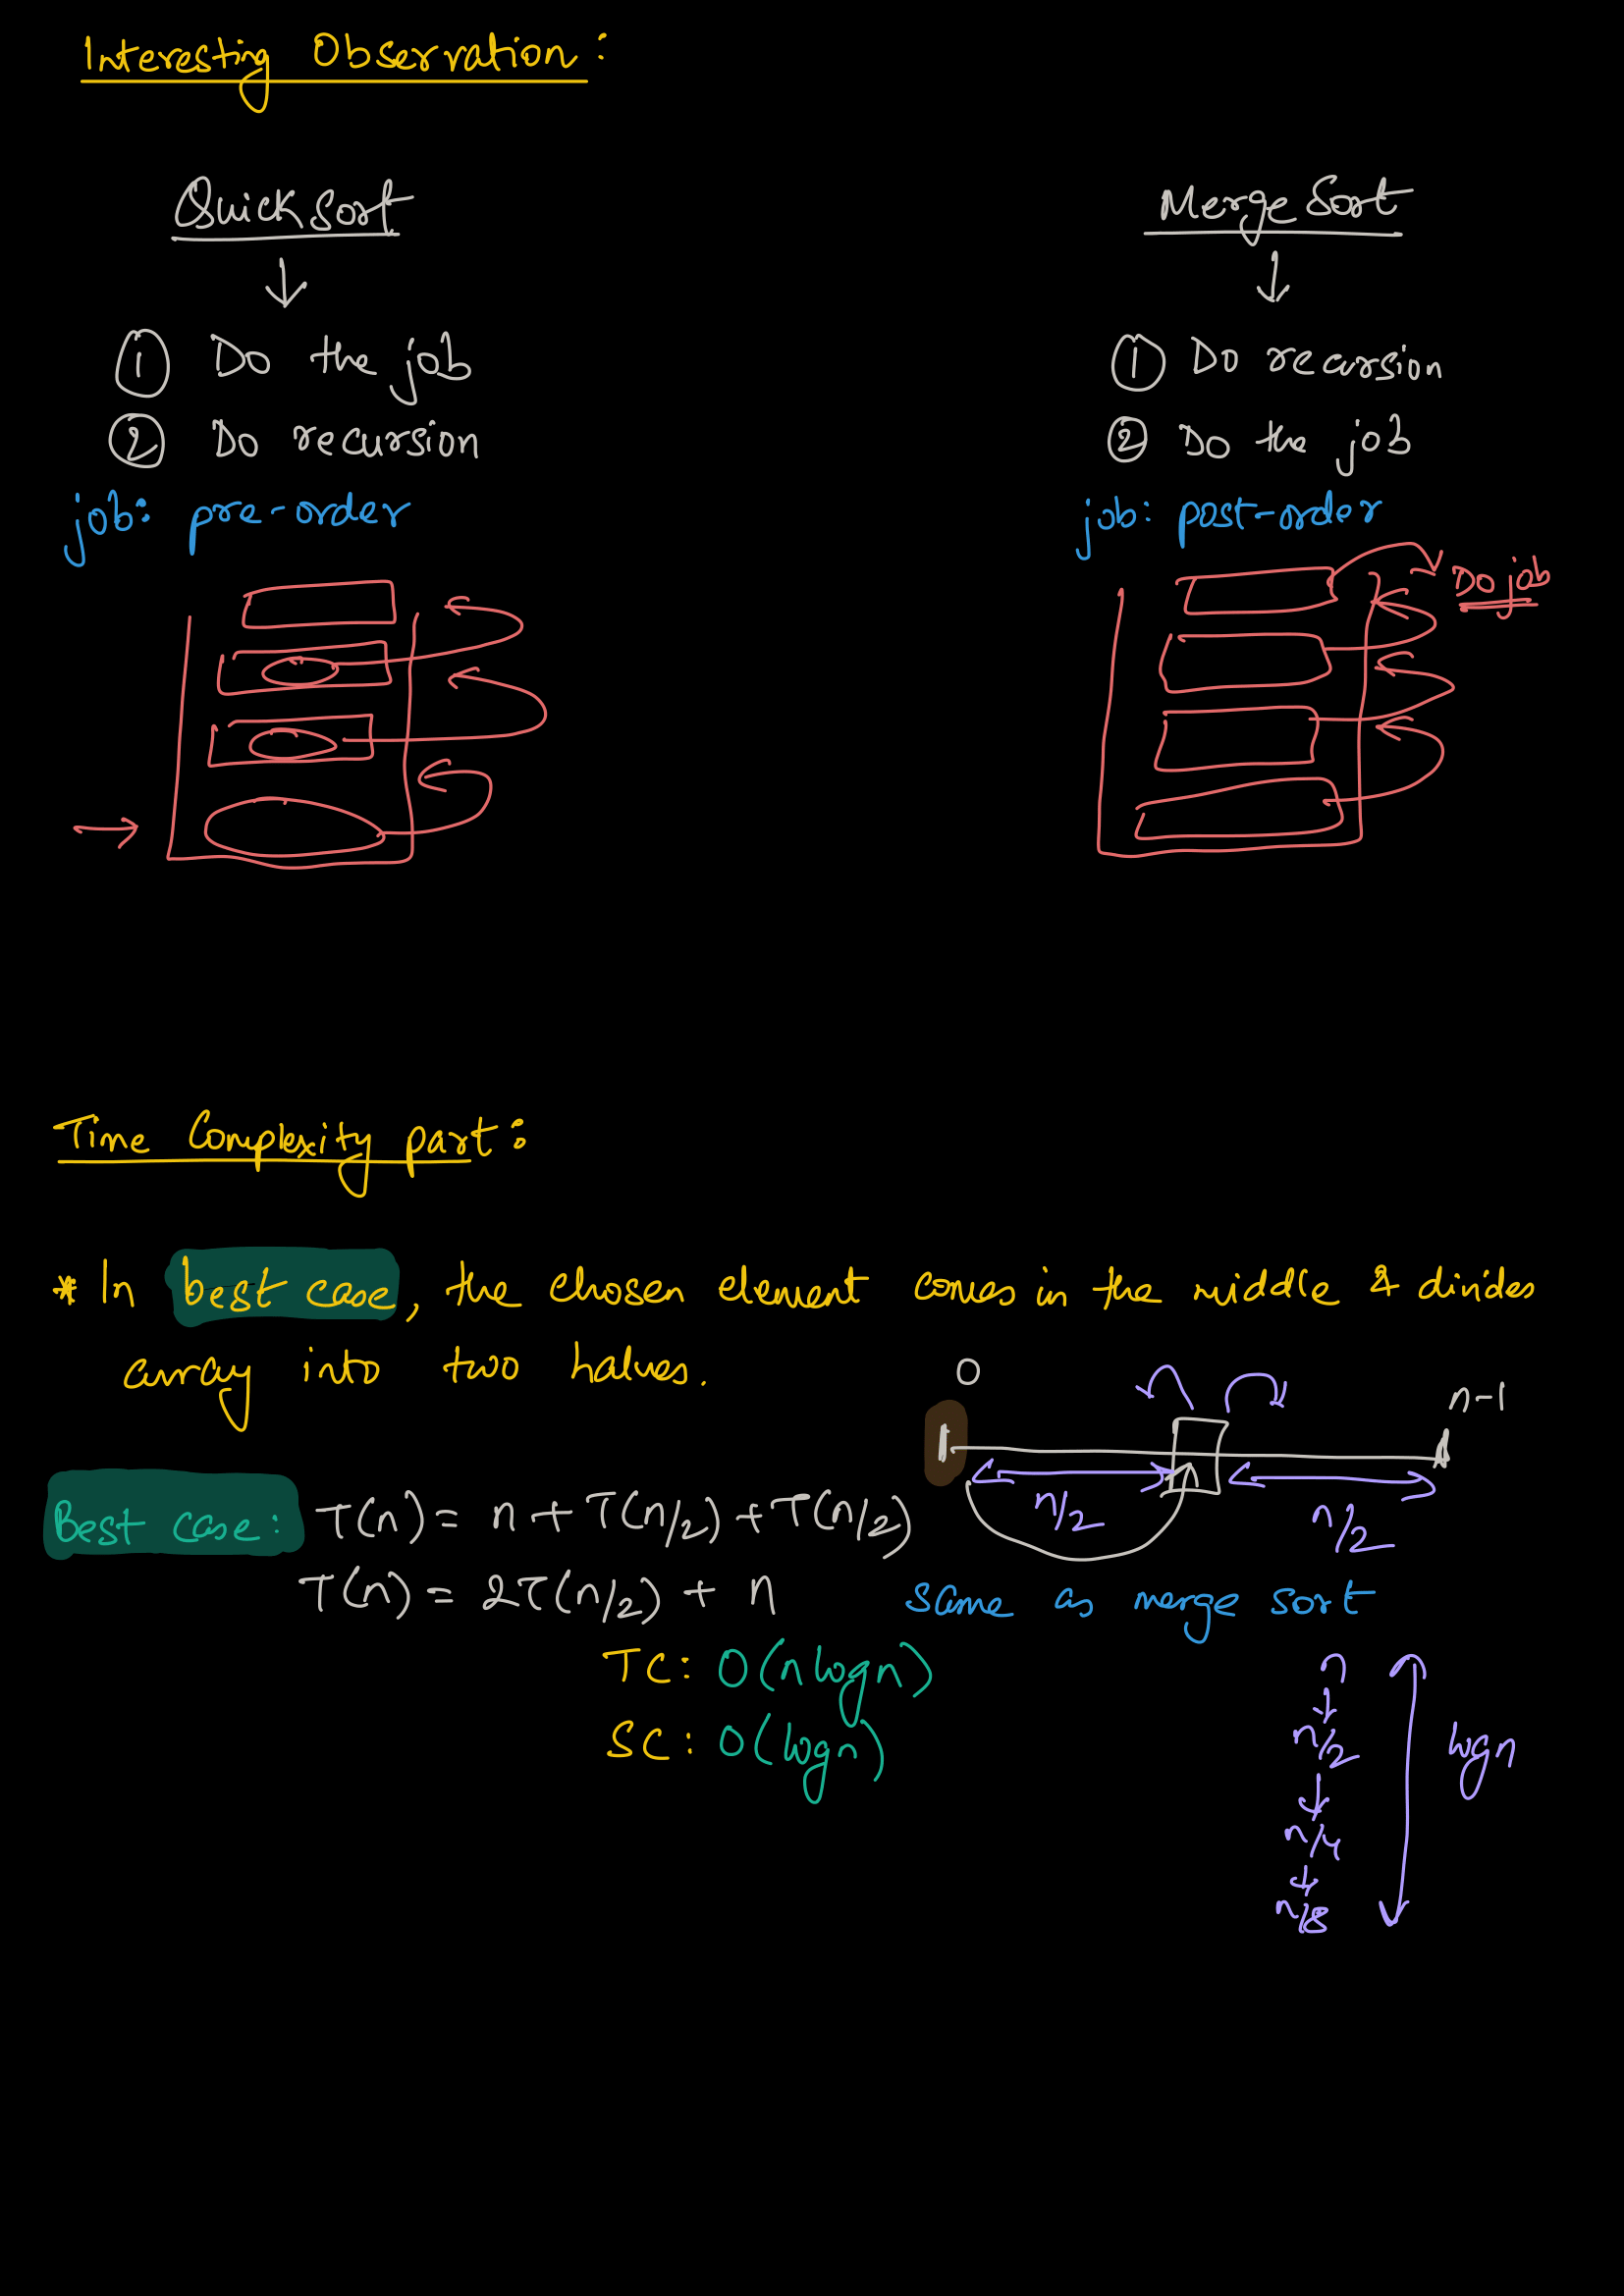 Interesting Observation:
Quick Sort
↓
① Do the job
② Do recursion
job: pre-order
Merge Sort
↓
① Do recursion
② Do the job
job: post-order
Do job
Time Complexity part:
* In best case, the chosen element comes in the middle & divides
array into two halves.
0
n-1
n/2
n/2
Best case: T(n) = n + T(n/2) + T(n/2)
T(n) = 2T(n/2) + n
same as merge sort
TC: O(nlogn)
SC: O(logn)
n
↓
n/2
↓
n/4
↓
n/8
logn